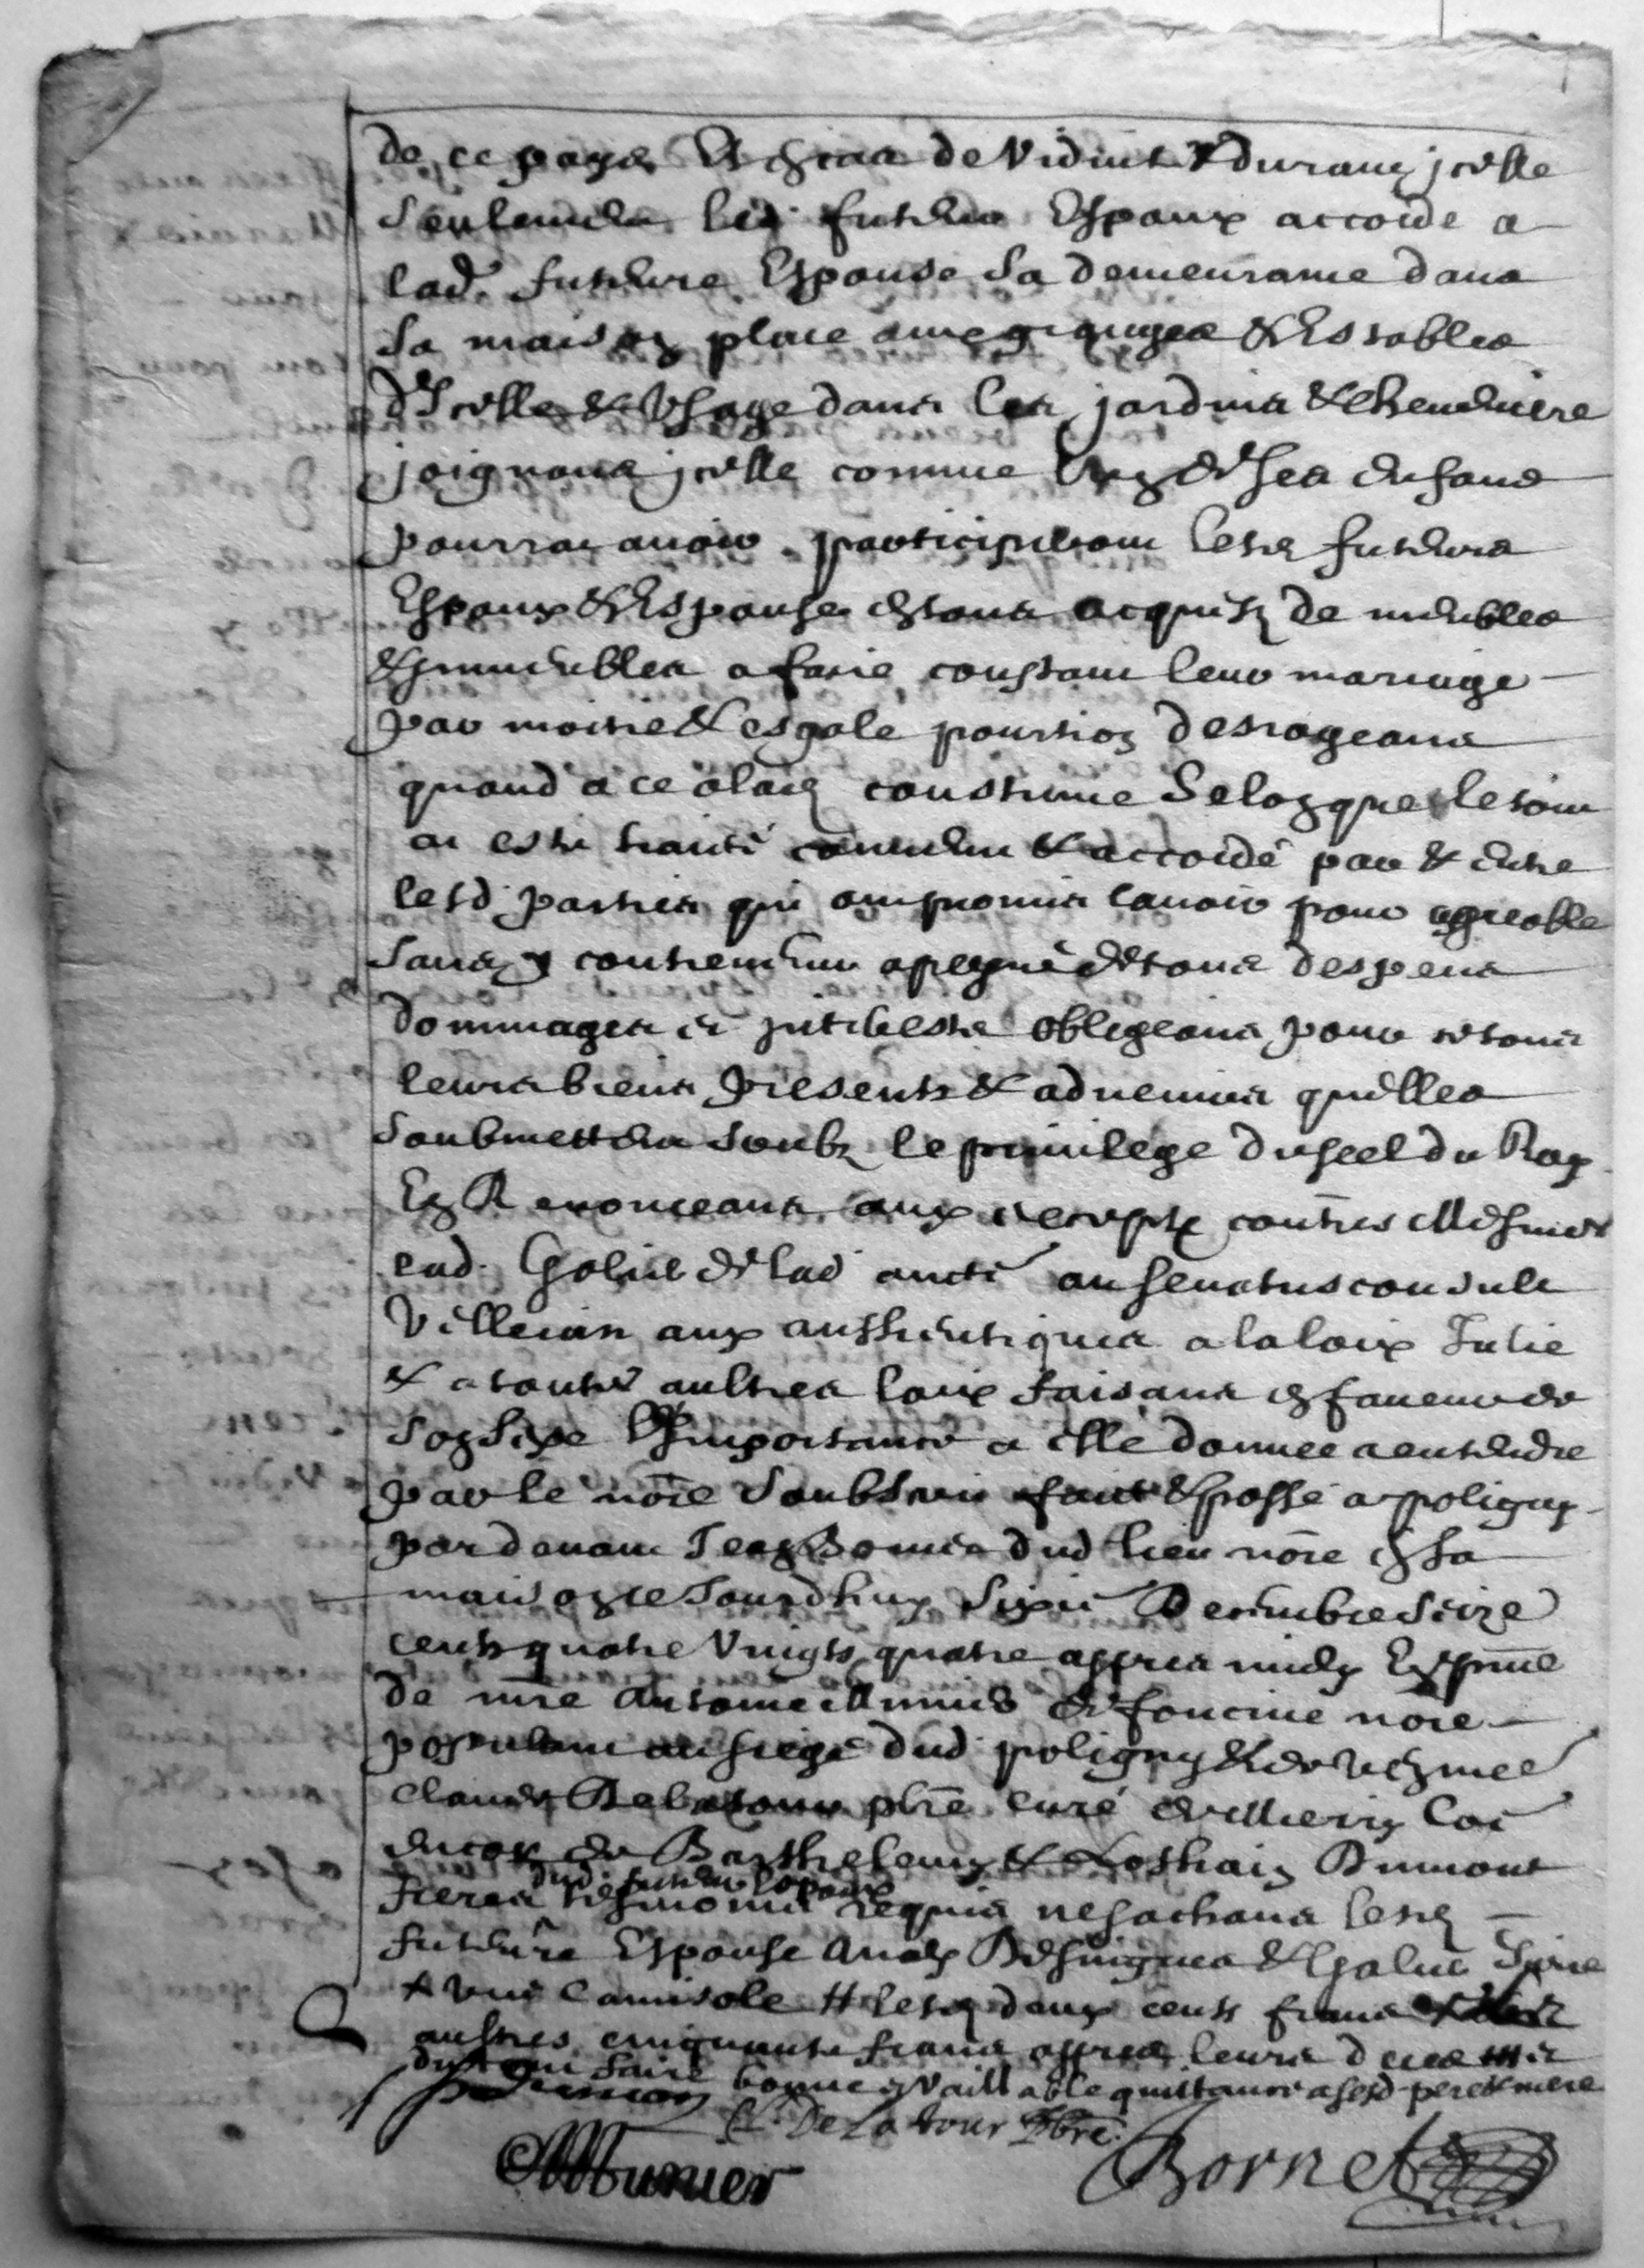 de ce pays Et de viduité & durant icelle
seulement led. futur Espoux accorde a
lad. future Espouse sa demeurance dans
sa maison place granges & Estables
d'icelle & usage dans les jardins & cheneviere
joignans icelle comme ung de ses enfans
pourrat avoir participeront lesd. futurs
Espoux & Espouse en tous acquests de meubles
& immeubles a faire constant leur mariage
par moitié & esgale pourtion desrogeans
quand a ce a la coustume Selon que le tout
at esté traité convenu & accordé par & entre
lesd. parties qui ont promis l'avoir pour agreable
sans y contrevenir a peyne de tous despens
dommages et interests obligeans pour ce tous
leurs biens presents & advenirs qu'elles
soubmettent soubz le privilege du seel du Roy
En Renonceans aux exceptz contres Mesmes
lad. Galiet de lad. aucté au senatusconsult
Velleian aux authentiques a la loix Julie
& a toutes aultres loix faisans en faveur de
son sexe L'importance a elle donnee a entendre
par le nore soubscri fait & passé a poligny
par devant Jean Bornet dud lieu nore en sa
maison ce Jourdhuy sixie Decembre seize
cents quatre vingts quatre appres midy En pnce
de mre Antoine Munier de foncine nore
postulant au siege dud. poligny & de venne mee
Claude Delatour pbre curé de Mieri
encor de Barthelemy & Dumont
freres dud. futur Espoux tesmoins requis ne sachans lesd.
future Espouse & Galiet signe
& une Camisole # lesd. deux cents francs
aultres cinquante francs appres leurs deces
du tout faire bonne & vaillable quittance a sesd. pere & mere
C. De La tour Pbre.
AMunier Bornet